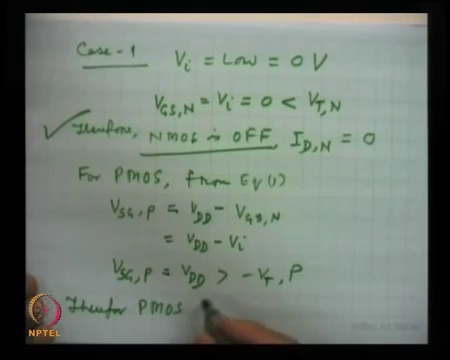 Case-1 Vi = Low = 0 V
VGS,N = Vi = 0 < VT,N
Therefore, NMOS is OFF, ID,N = 0
For PMOS, from Eq(1)
VSG,P = VDD - VGS,N
= VDD - Vi
VSG,P = VDD > -VT,P
Therefor PMOS
NPTEL